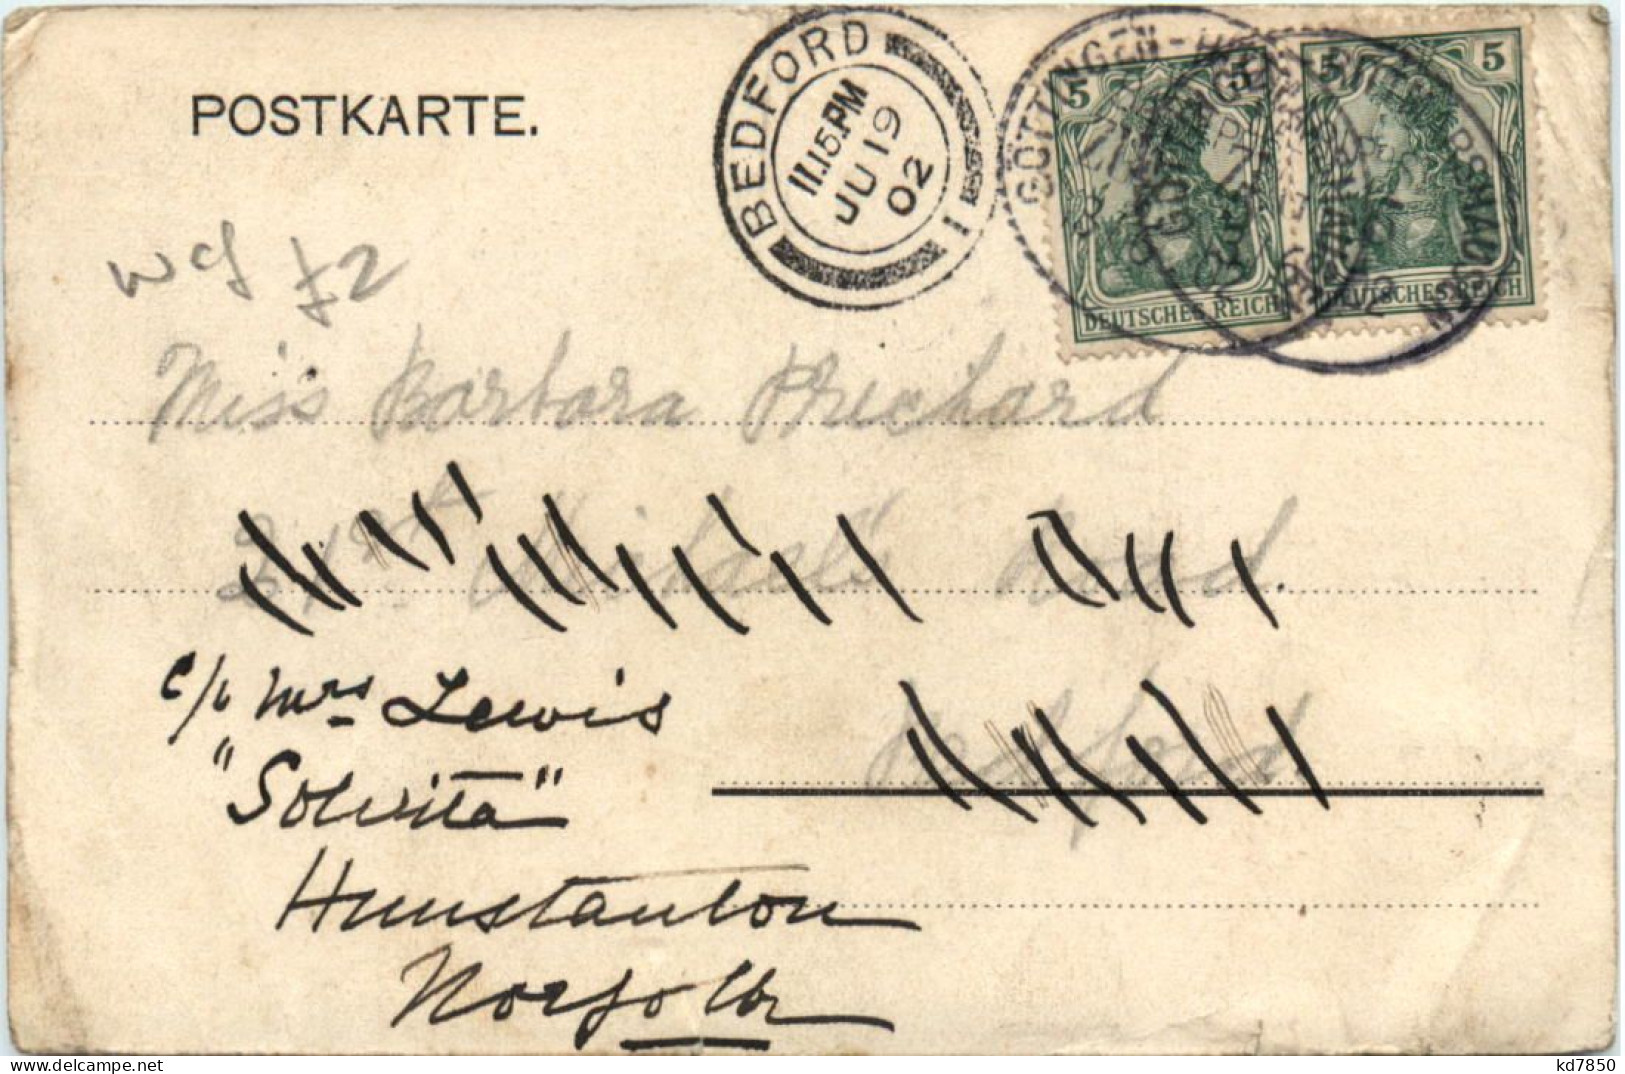 POSTKARTE.
BEDFORD
11.15 PM
JU 19
02
1
GÖTTINGEN
5 5
DEUTSCHES REICH
5 5
DEUTSCHES REICH
Miss Barbara Prichard
Michael's Road
Bedford
c/o Mrs Lewis
"Solvita"
Hunstanton
Norfolk
kd7850